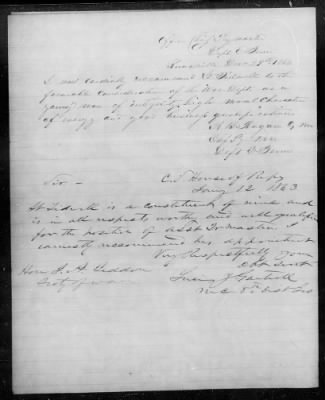 Office Chf Qr master
Dept E. Tenn
Knoxville Decr 28th 1862
I most cordially recommend to the
favorable consideration of the War Dept. as a
young man of integrity high moral Character
of energy and good business qualifications
Chf Qr
Dept E Tenn
Sir —
C.S. House of Reps
Jany 12 1863
is a constituent of mine and
is in all respects worthy and well qualified
for the position of Asst Qr Master. I
earnestly recommend his appointment
Very Respectfully Your
Obt Servt
Hon J. A. Seddon
Secty of War
Lucius J Gartrell
M.C. 8th Dist Geo